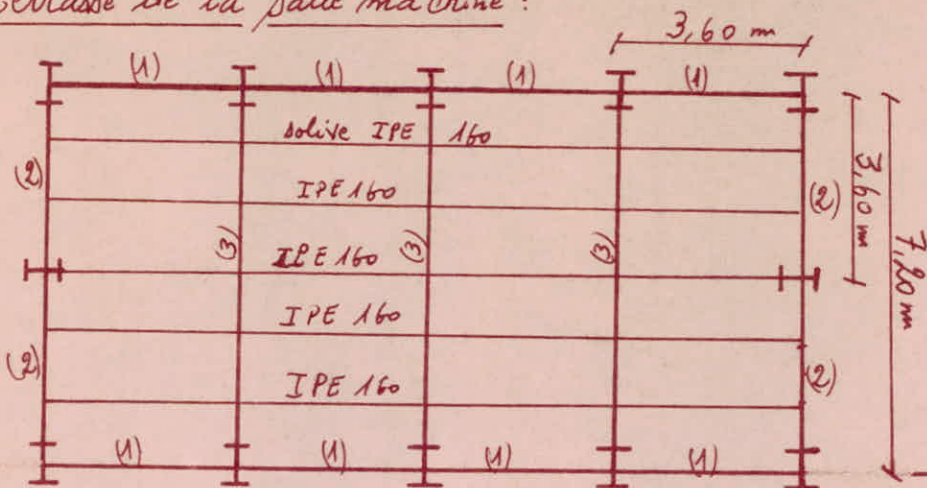 terrasse de la salle machine :
3,60 m
(1) (1) (1) (1)
solive IPE 160
(2) IPE 160 (2)
3,60 m
7,20 m
(3) IPE 160 (3) (3)
IPE 160
(2) IPE 160 (2)
(1) (1) (1) (1)